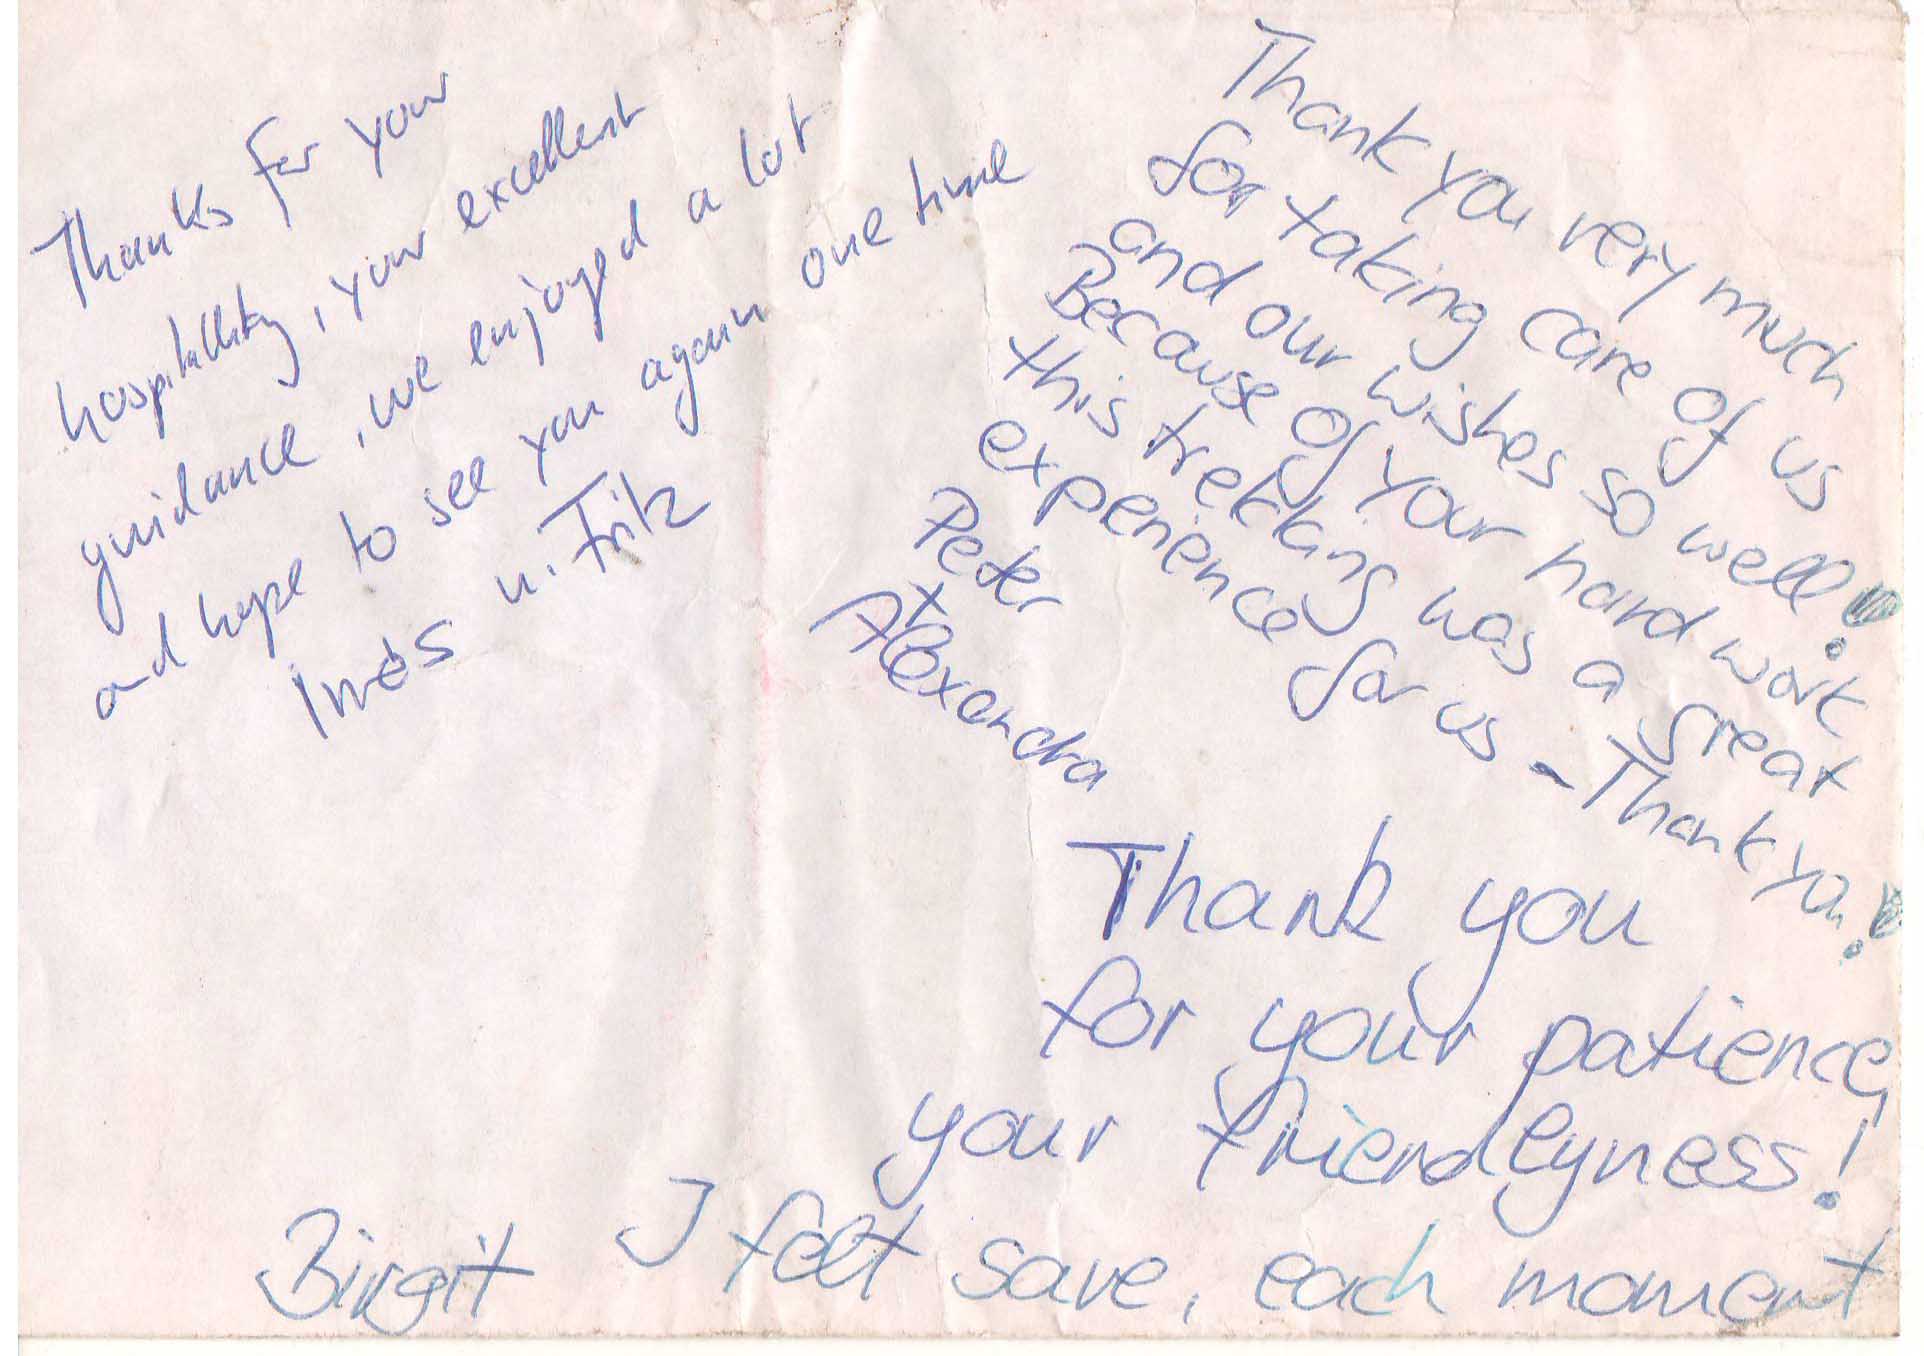 Thanks for your
hospitallity, your excellent
guidance, we enjoyed a lot
and hope to see you again one time
Ines u. Fritz
Thank you very much
for taking care of us
and our wishes so well!
Because of your hard work
this trekking was a great
experience for us - Thank you!
Peter
+
Alexandra
Thank you
for your patience,
your friendlyness!
I felt save, each moment
Birgit